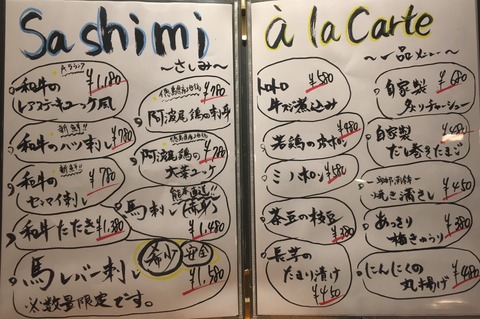 Sashimi
〜さしみ〜
Aランク
和牛の
レアステーキユッケ風
¥1,180
新鮮!!
和牛のハツ刺し
¥780
新鮮!!
和牛の
センマイ刺し
¥780
和牛たたき
¥1,380
馬レバー刺し
希少
安全
¥1,580
※数量限定です。
¥780
阿波尾鶏の刺身
阿波尾鶏の
大葉ユッケ
¥780
熊本直送!!
馬刺し(赤身)
¥1,380
à la Carte
〜一品メニュー〜
トロトロ
牛スジ煮込み
¥580
若鶏の
¥480
ミノポン
¥580
茶豆の枝豆
¥380
長芋の
たまり漬け
¥450
自家製
炙りチャーシュー
¥680
自家製
だし巻きたまご
¥480
焼き
¥450
あっさり
梅きゅうり
¥380
にんにくの
丸揚げ
¥480